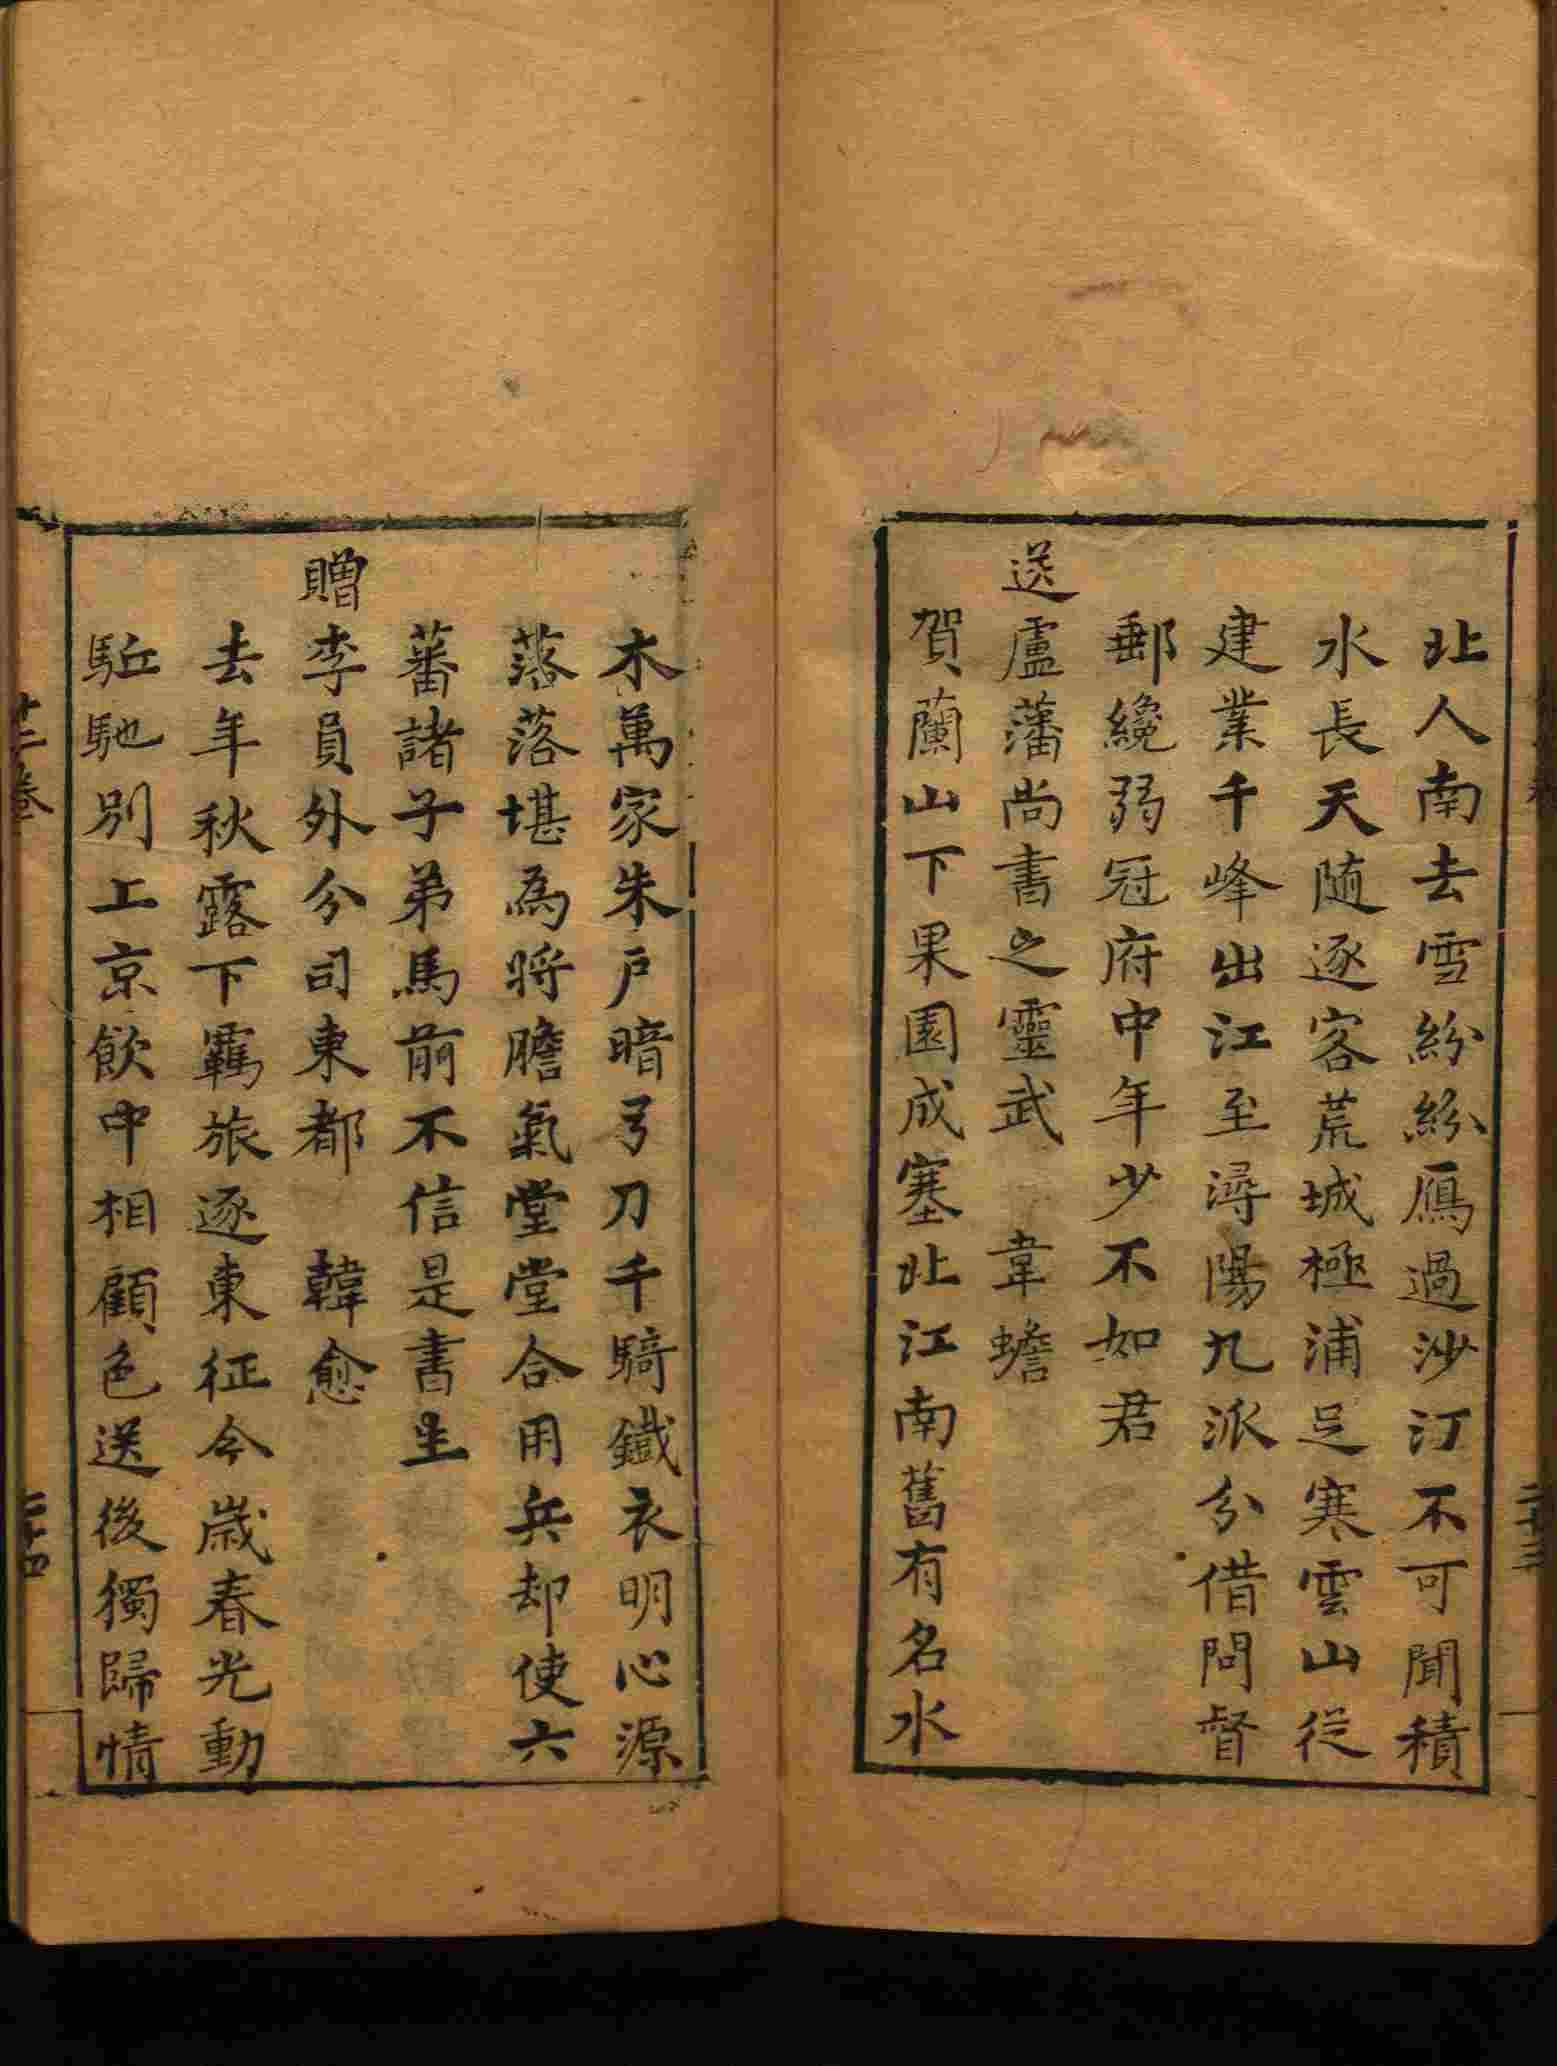 北人南去雪紛紛鴈過沙汀不可聞積
水長天随逐客荒城極浦足寒雲山從
建業千峰出江至潯陽九派分借問督
郵纔弱冠府中年少不如君
送盧藩尚書之靈武　韋蟾
賀蘭山下果園成塞北江南舊有名水
木萬家朱戶暗弓刀千騎鐵衣明心源
落落堪為將膽氣堂堂合用兵却使六
蕃諸子弟馬前不信是書生
贈李員外分司東都　韓愈
去年秋露下羈旅逐東征今歲春光動
駈馳別上京飲中相顧色送後獨歸情
十二卷
二十四
二十三